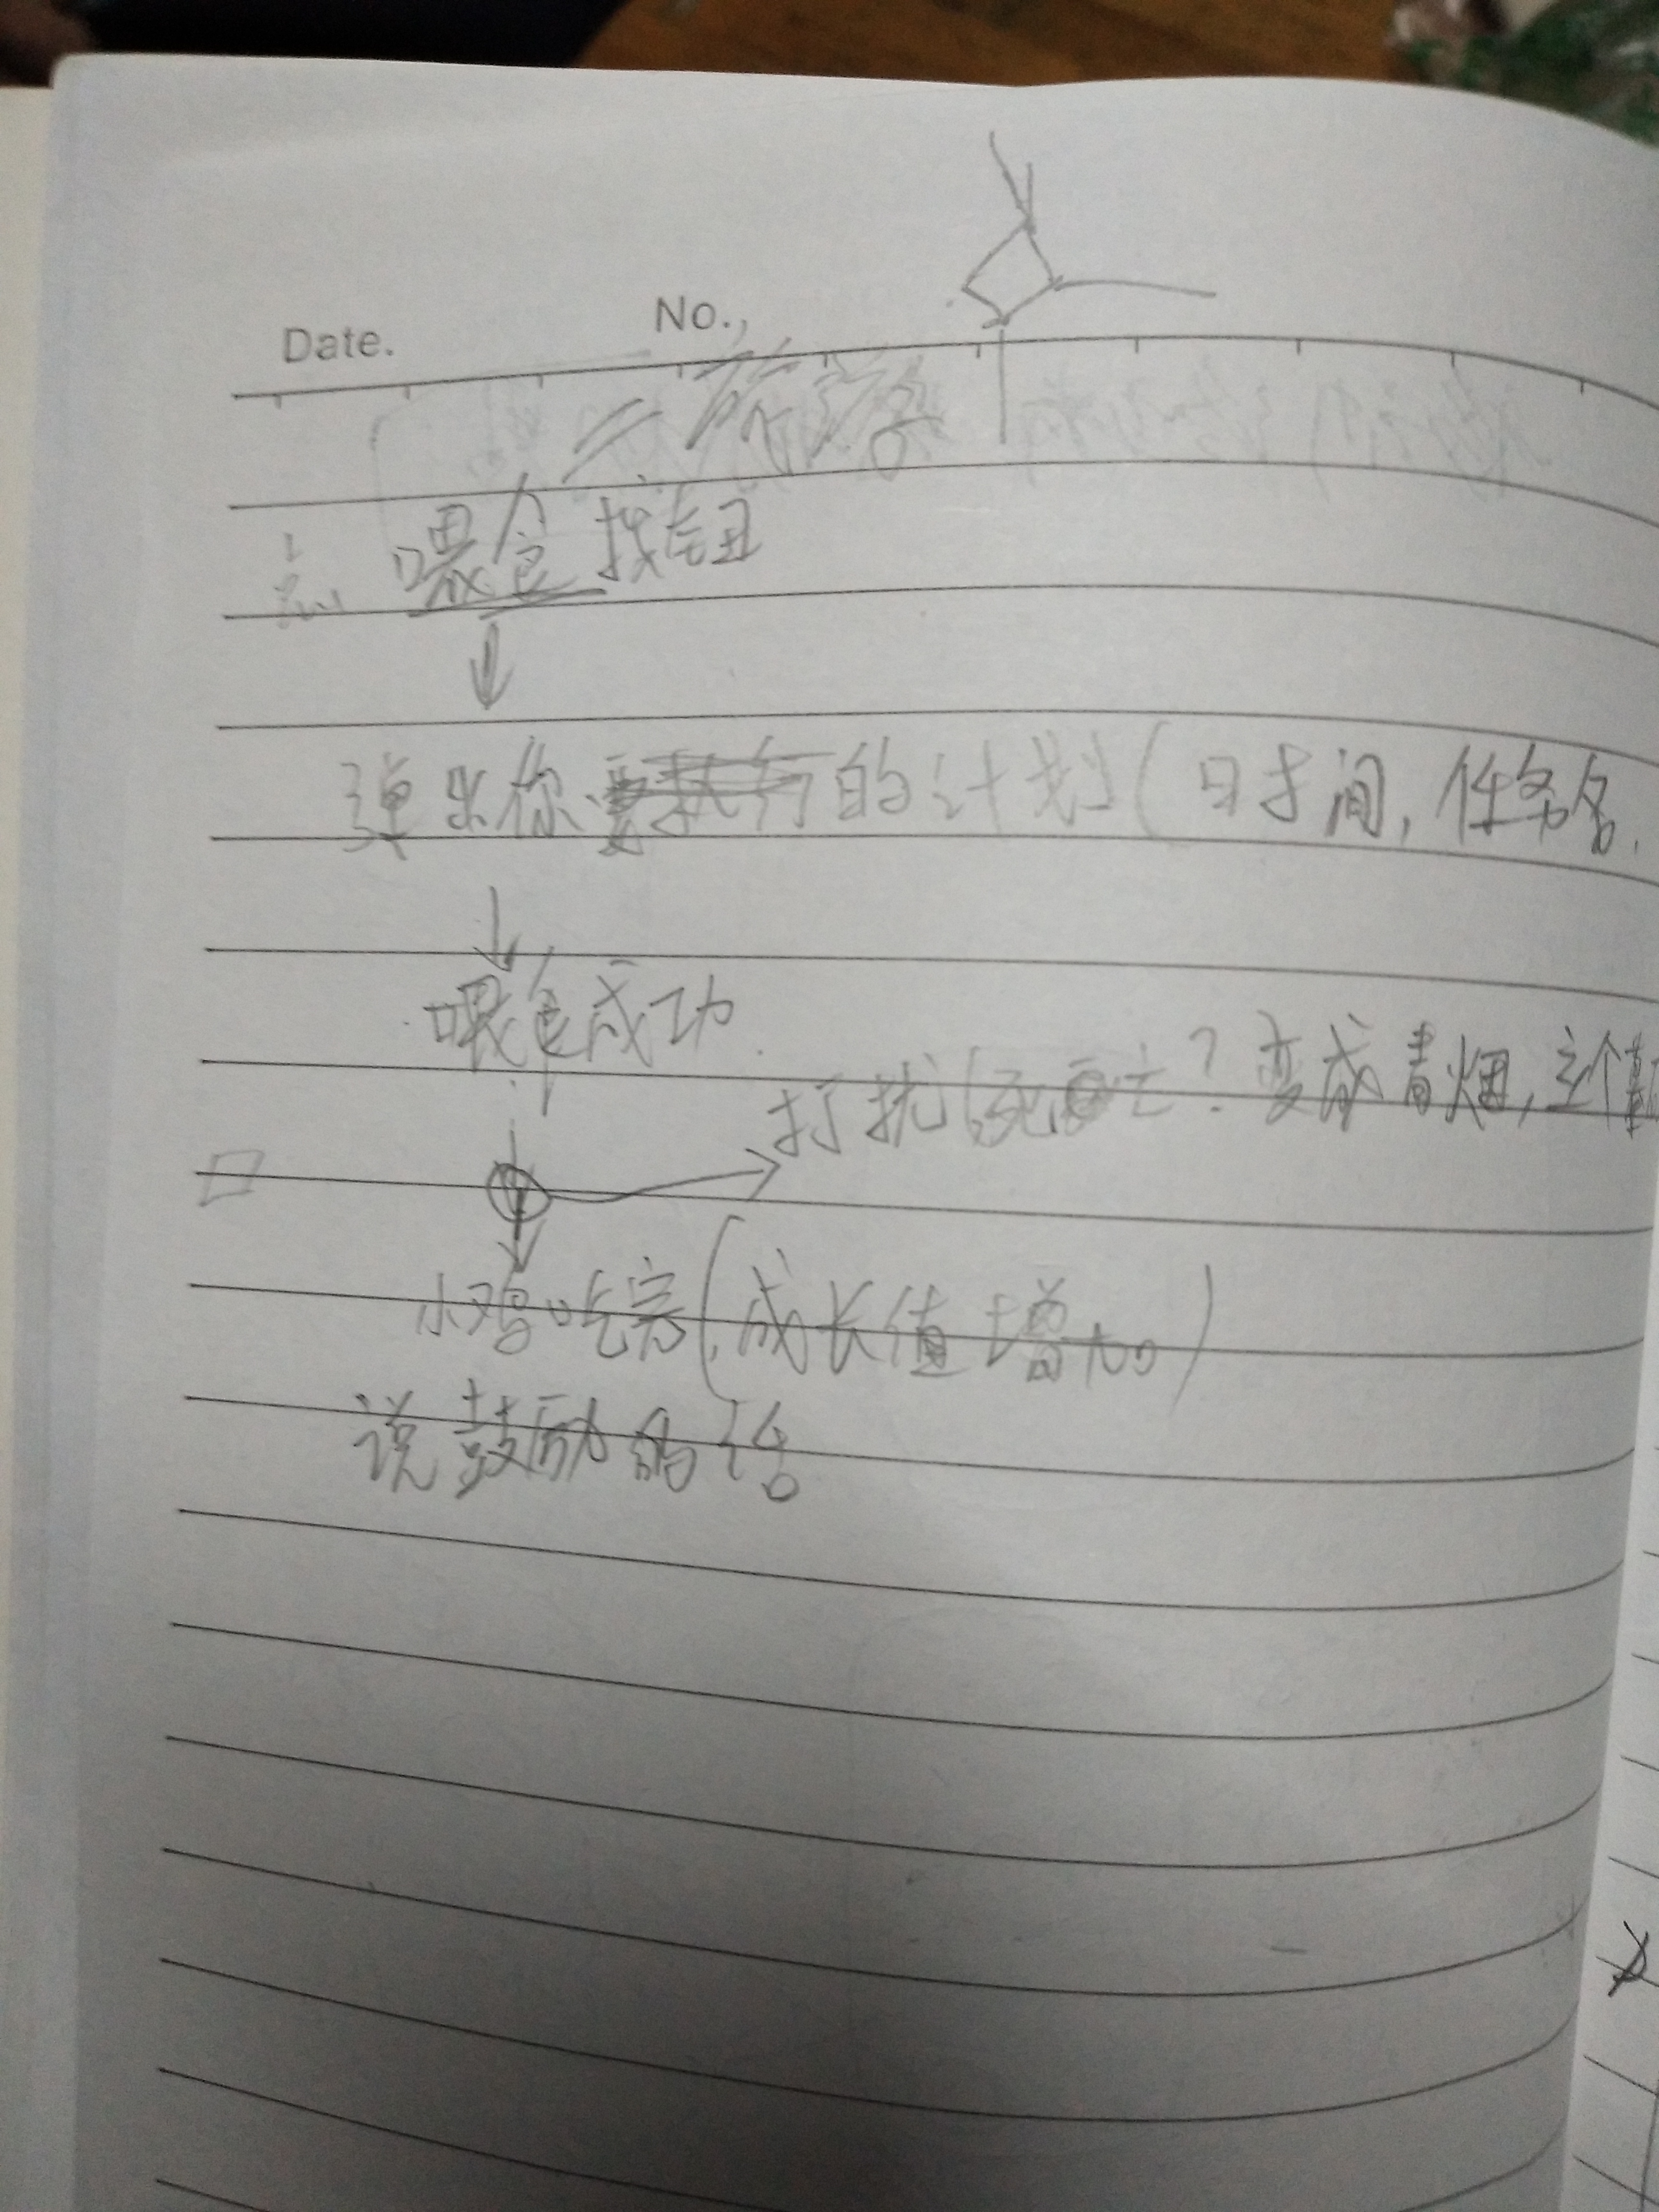 Date. No.
喂食按钮
弹出你要执行的计划(时间,任务名,
喂食成功
打扰 死亡?变成青烟,立个
小鸡吃完(成长值增加)
说鼓励的话